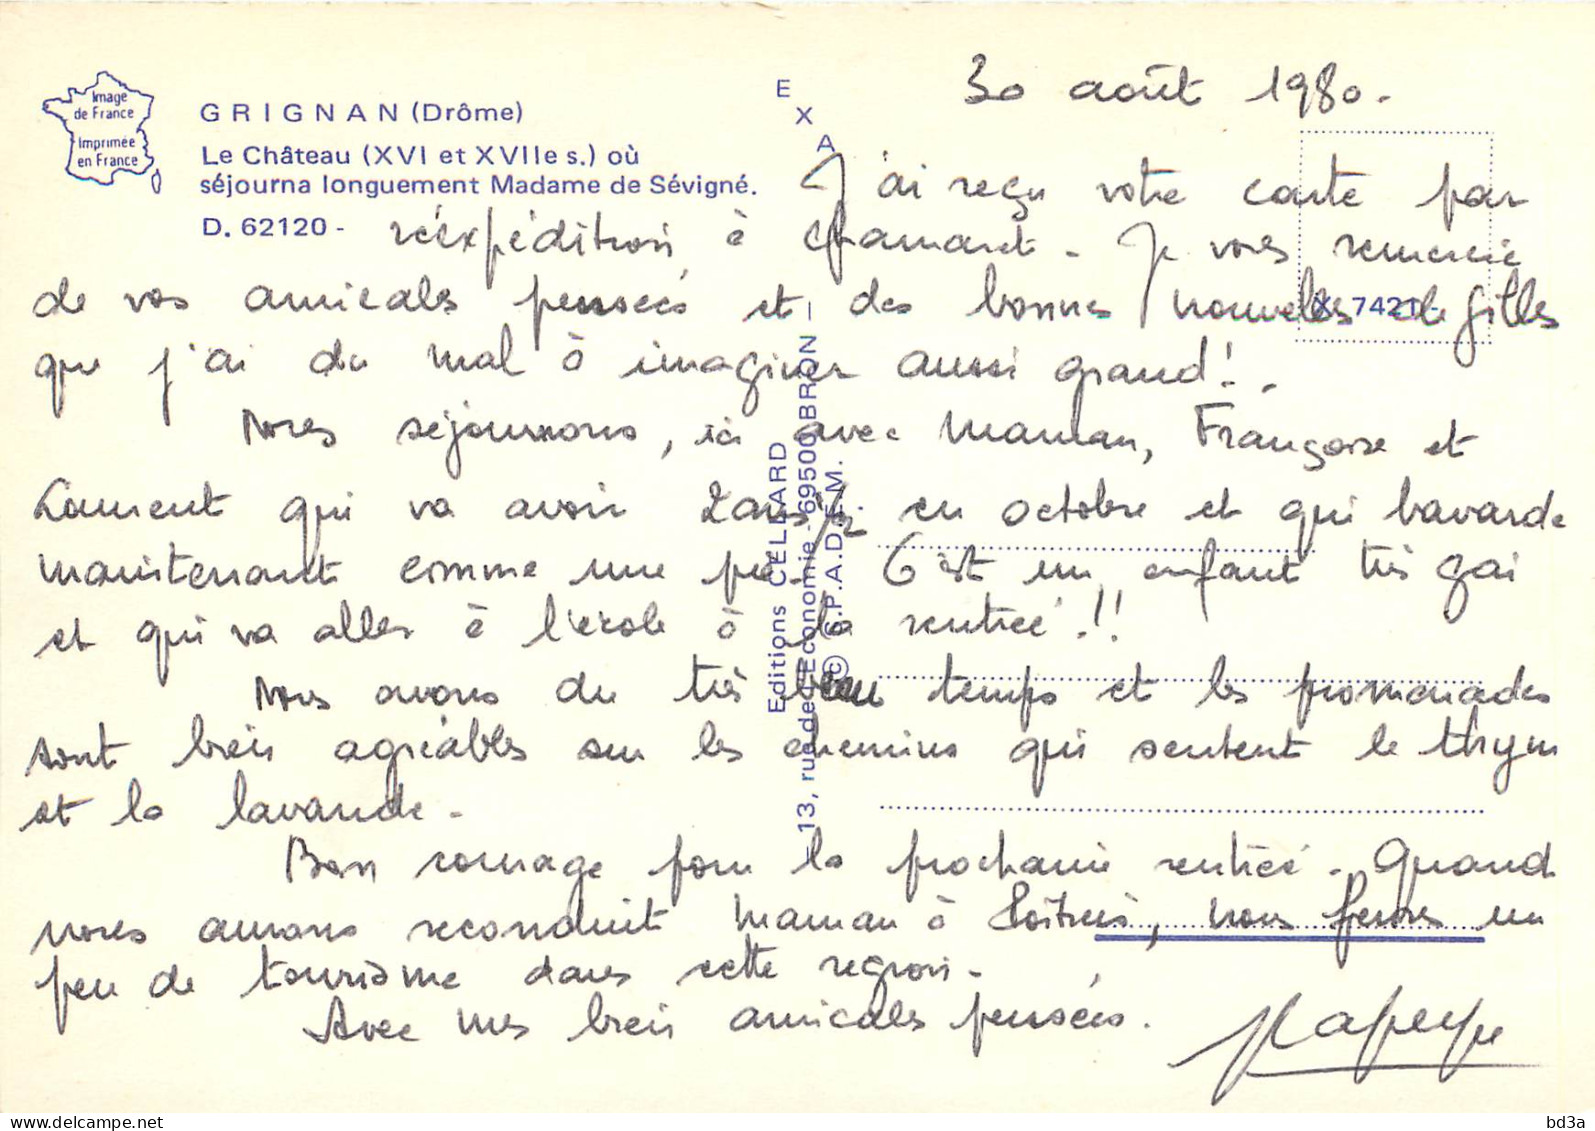 Image
de France
Imprimée
en France
GRIGNAN (Drôme)
Le Château (XVI et XVIIe s.) où
séjourna longuement Madame de Sévigné.
D. 62120 -
EXA
X 7421 -
Editions CELLARD
- 13, rue de l'Economie - 69500 BRON -
© S.P.A.D.E.M.
30 août 1980.
J'ai reçu votre carte par
réexpédition à Chamaret. Je vous remercie
de vos amicales pensées et des bonnes nouvelles de Gilles
que j'ai du mal à imaginer aussi grand!.
Nous séjournons, ici avec Maman, Françoise et
Laurent qui va avoir 2 ans 1/2 en octobre et qui bavarde
maintenant comme une pie. C'est un enfant très gai
et qui va aller à l'école à la rentrée!!
Nous avons du très beau temps et les promenades
sont bien agréables sur les chemins qui sentent le thym
et la lavande.
Bon courage pour la prochaine rentrée. Quand
nous aurons reconduit Maman à Poitiers, nous ferons un
peu de tourisme dans cette région.
Avec mes bien amicales pensées.
bd3a